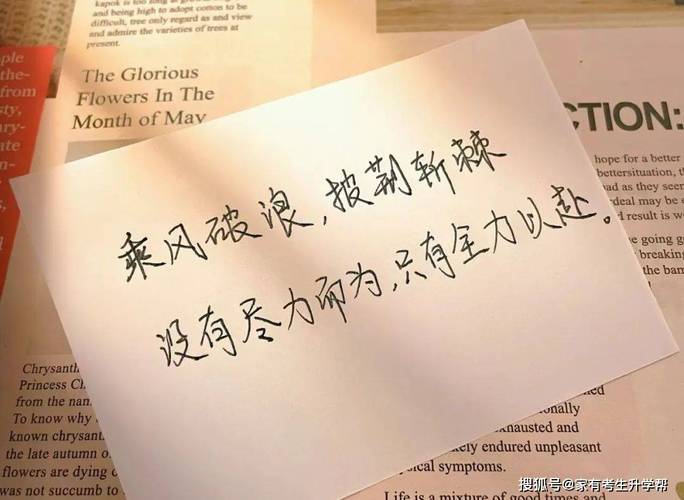 kapok is too long at
and being high to adopt cotton to be
difficult, tree only regard as and view
and admire the varieties of trees at
present.
The Glorious
Flowers In The
Month of May
ple
the-
from
sty,
ary-
ate
n-
s,
CTION:
hope for a better
bettersituation, t
ad as they seem
deal may be
d result is w
e going g
breaking
the bam
乘风破浪,披荆斩棘
没有尽力而为,只有全力以赴。
Chrysanth
Princess Ch
from the nam
To know why
known chrysant
the late autumn o
flowers are dying
was not succumb to
ed
onally
xhausted and
ely endured unpleasant
ical symptoms.
Life is a mixture of good times and
搜狐号@家有考生升学帮